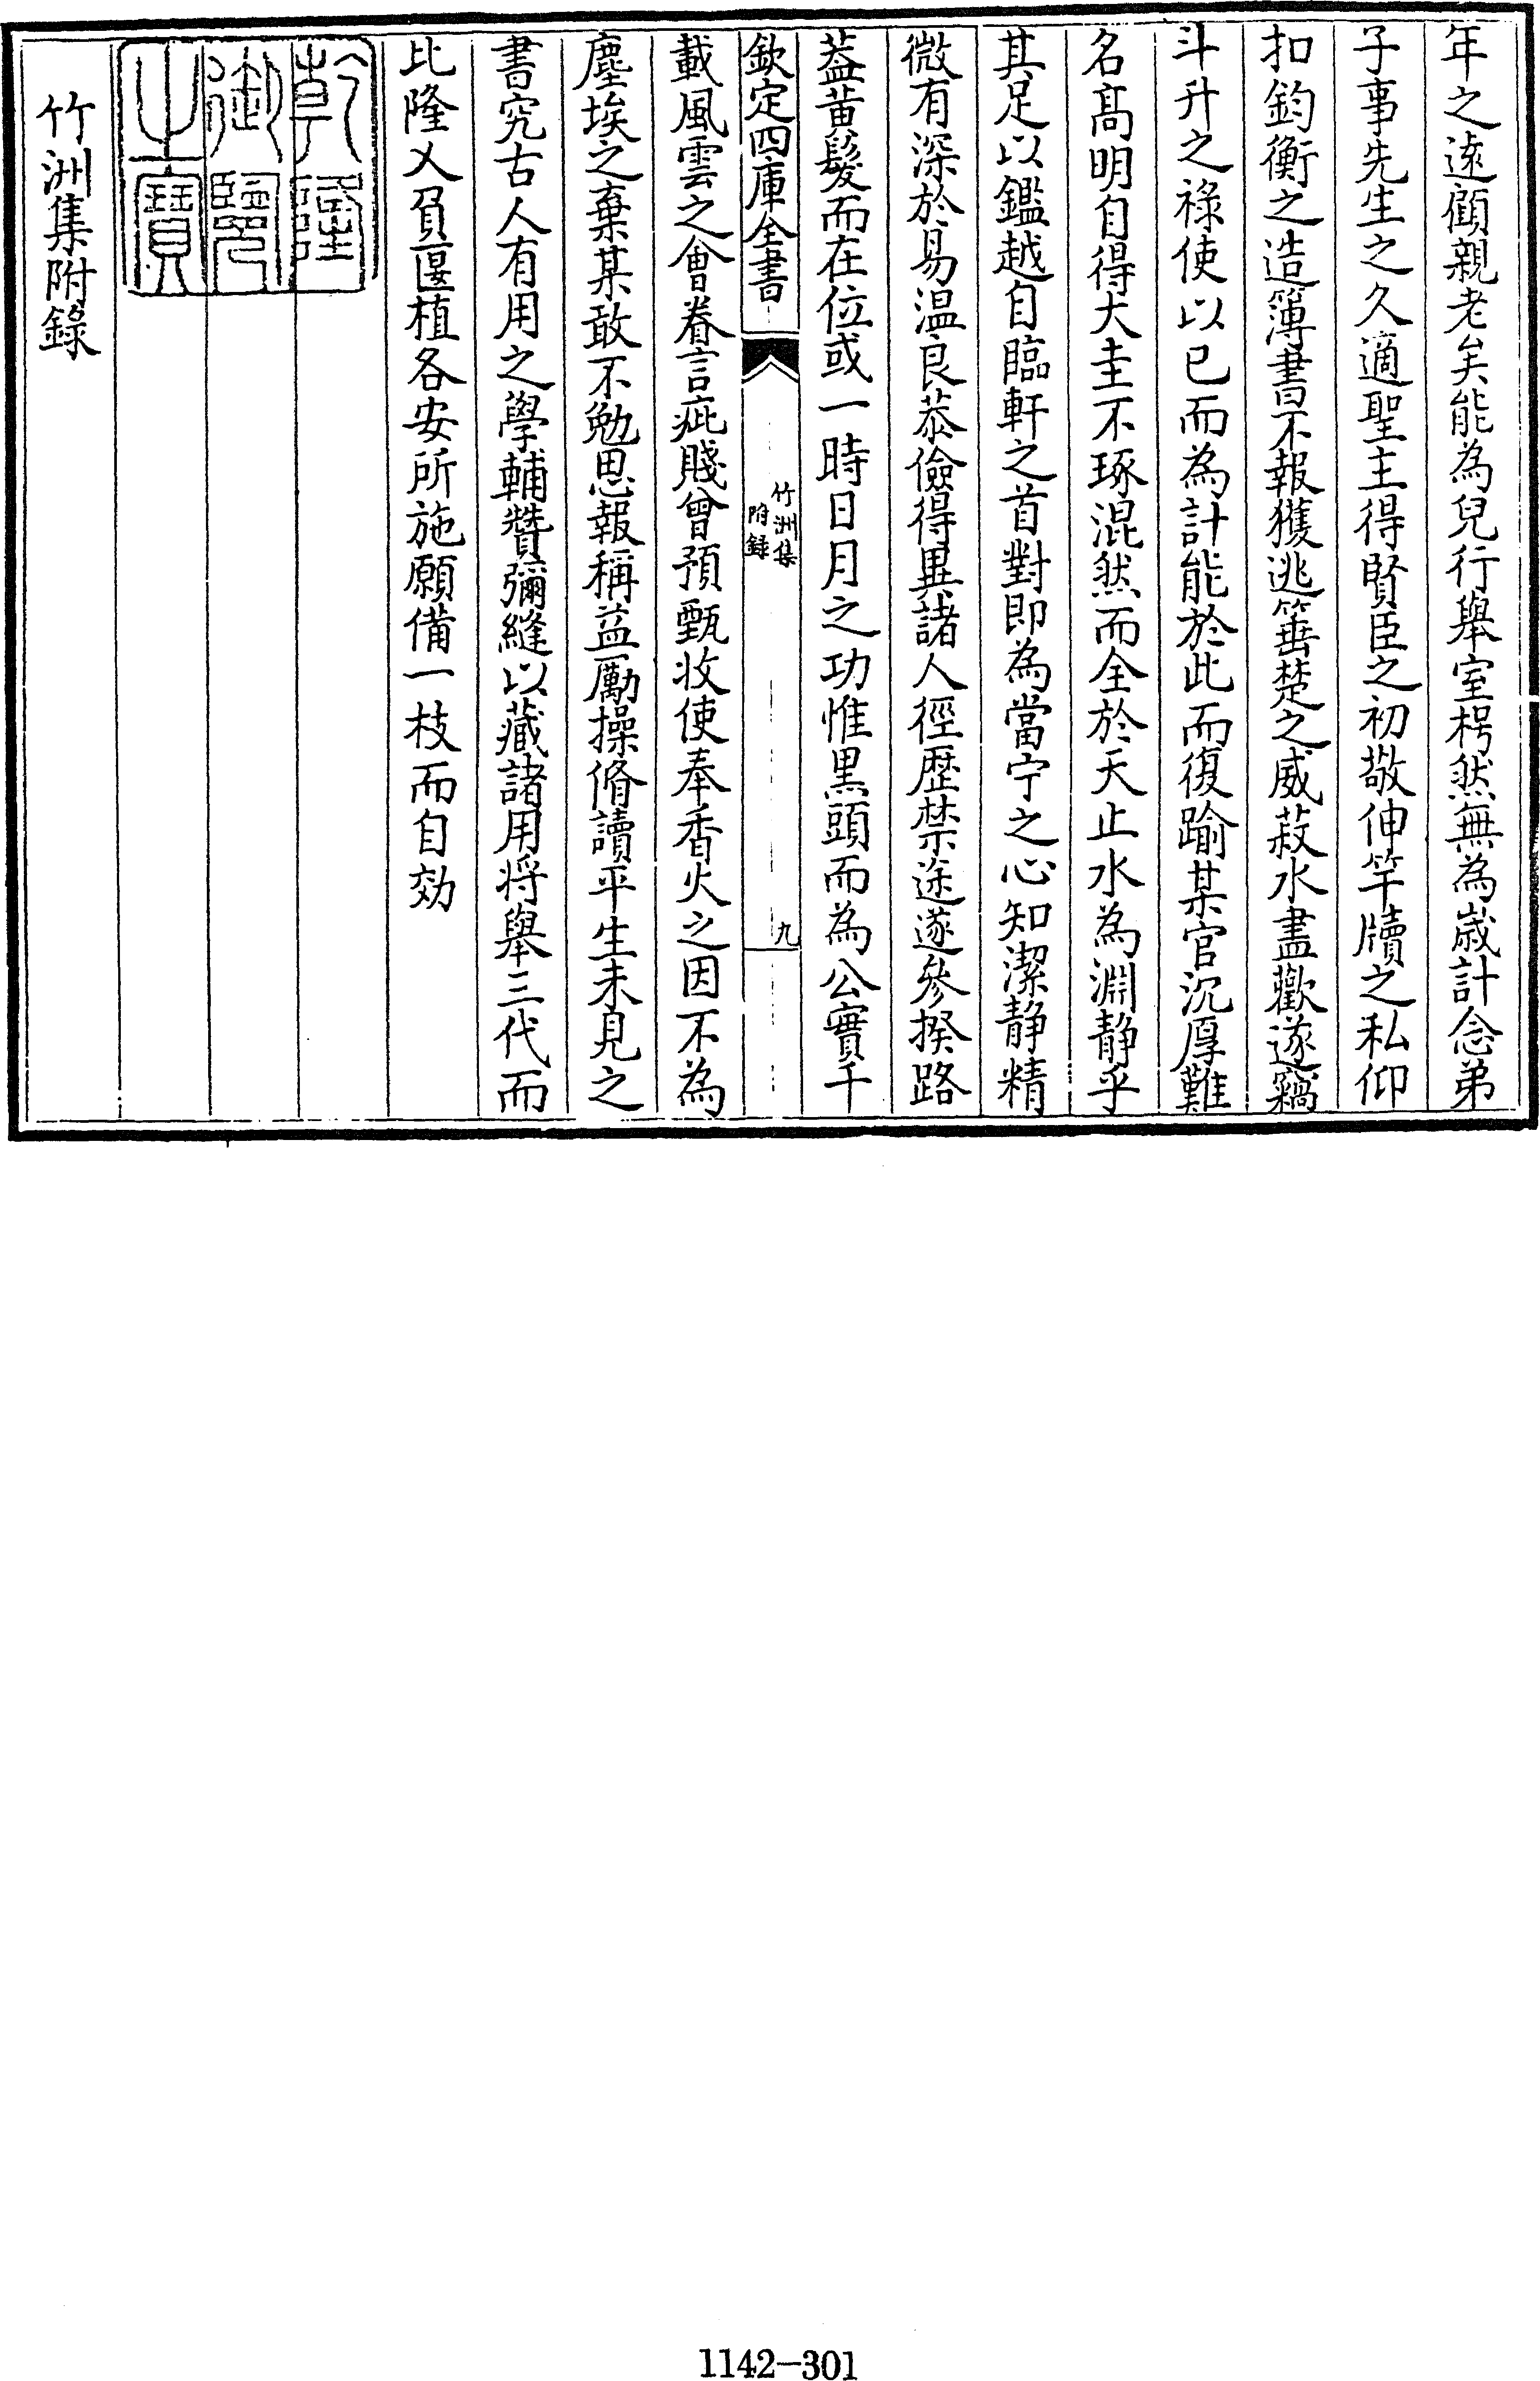 年之逺顧親老矣能為兒行舉室枵然無為嵗計念弟
子事先生之久適聖主得賢臣之初敬伸竿牘之私仰
扣鈞衡之造簿書不報獲逃箠楚之威菽水盡歡遂竊
斗升之禄使以已而為計能於此而復踰某官沉厚難
名髙明自得大圭不琢混然而全於天止水為淵静乎
其足以鑑越自臨軒之首對即為當宁之心知潔静精
微有深於易温良恭儉得異諸人徑歴禁途遂參揆路
葢黄髮而在位或一時日月之功惟黒頭而為公實千
欽定四庫全書
竹洲集
附録
九
載風雲之會眷言疵賤曾預甄收使奉香火之因不為
塵埃之棄某敢不勉思報稱益厲操脩讀平生未見之
書究古人有用之學輔贊彌縫以藏諸用将舉三代而
比隆乂負匽植各安所施願備一枝而自効
乾隆
御覽
之寶
竹洲集附錄
1142-301